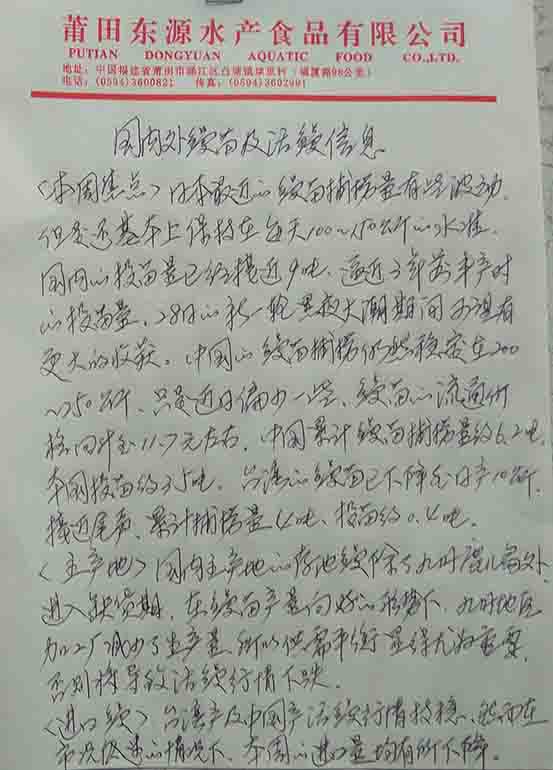 莆田东源水产食品有限公司
PUTIAN DONGYUAN AQUATIC FOOD CO.,LTD.
地址：中国福建省莆田市涵江区白塘镇埭里村（福厦路98公里）
电话：(0594)3600821 传真：(0594)3602991
国内外鳗苗及活鳗信息
〈本周焦点〉日本最近的鳗苗捕捞量有些波动，
但是还基本上保持在每天100~150公斤的水准，
国内的投苗量已经接近9吨，逼近3年前丰产时
的投苗量，28日的新一轮黑夜大潮期间有望有
更大的收获。中国的鳗苗捕捞仍然稳定在200
~250公斤，只是近日偏少一些，鳗苗的流通价
格回升至11.7元左右，中国累计鳗苗捕捞量约6.2吨，
本国投苗约3.5吨，台湾的鳗苗已下降至日产10公斤，
接近尾声，累计捕捞量4吨，投苗约0.4吨。
〈主产地〉国内主产地的存池鳗除了九州鹿儿岛外
进入缺货期，在鳗苗产量向好的形势下，九州地区
加工厂减少了生产量，所以供需平衡显得尤为重要，
否则将导致活鳗行情下跌。
〈进口鳗〉台湾产及中国产活鳗行情持稳，然而在
市况低迷的情况下，本周的进口量均有所下降。